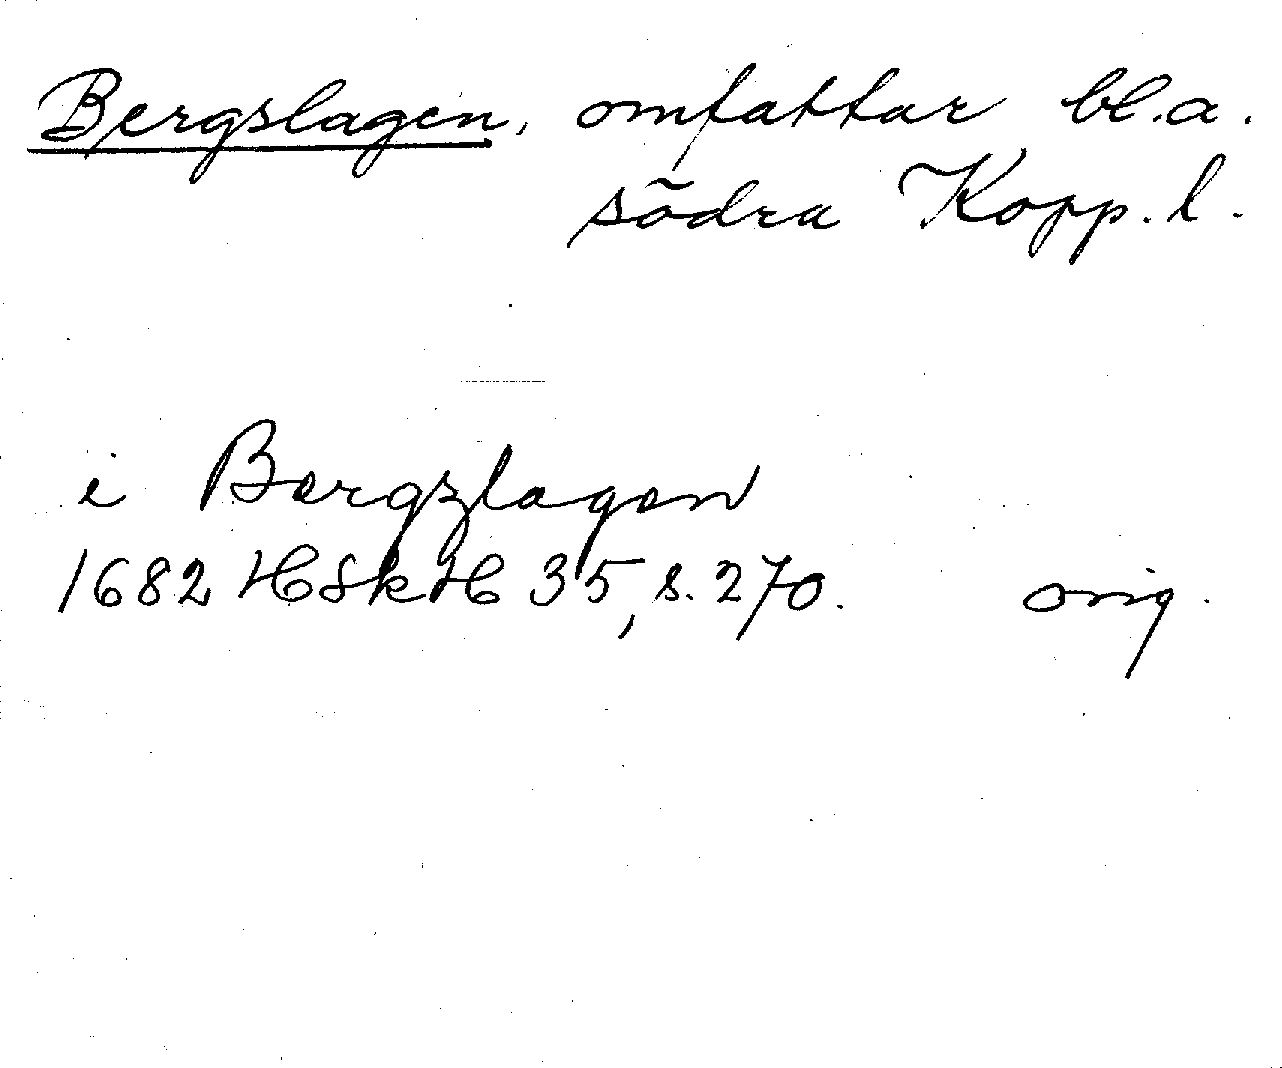 Bergslagen, omfattar bl.a.
södra Kopp.l.
i Bergzlagen
1682 HSkH 35, s. 270. orig.